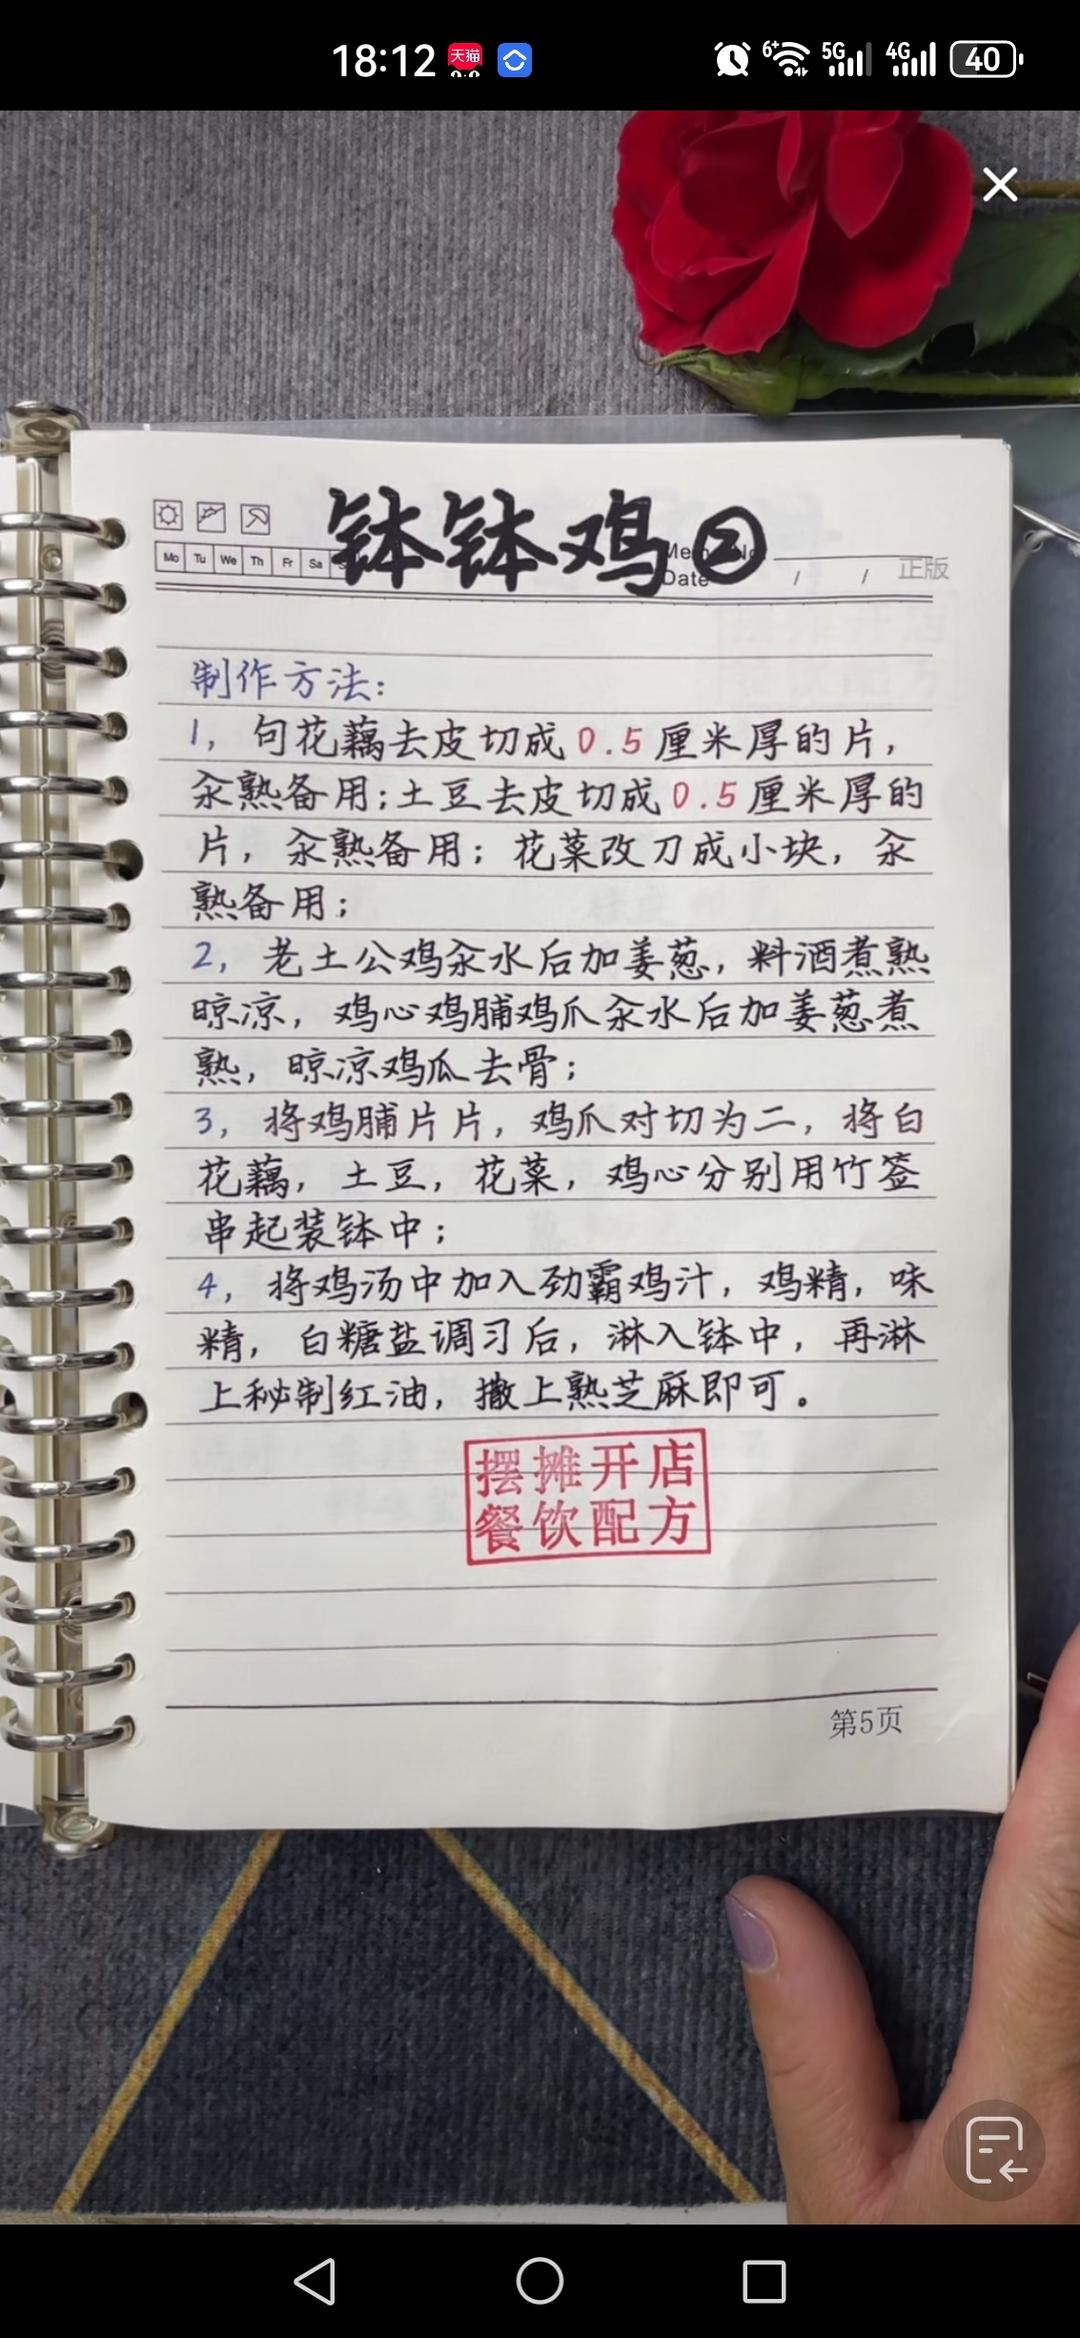 18:12 天猫 6+ 5G 4G 40
钵钵鸡②
Mo Tu We Th Fr Sa
Date / / 正版
制作方法:
1, 句花藕去皮切成0.5厘米厚的片,
汆熟备用;土豆去皮切成0.5厘米厚的
片, 汆熟备用; 花菜改刀成小块, 汆
熟备用;
2, 老土公鸡汆水后加姜葱, 料酒煮熟
晾凉, 鸡心鸡脯鸡爪汆水后加姜葱煮
熟, 晾凉鸡瓜去骨;
3, 将鸡脯片片, 鸡爪对切为二, 将白
花藕, 土豆, 花菜, 鸡心分别用竹签
串起装钵中;
4, 将鸡汤中加入劲霸鸡汁, 鸡精, 味
精, 白糖盐调习后, 淋入钵中, 再淋
上秘制红油, 撒上熟芝麻即可。
摆摊开店
餐饮配方
第5页